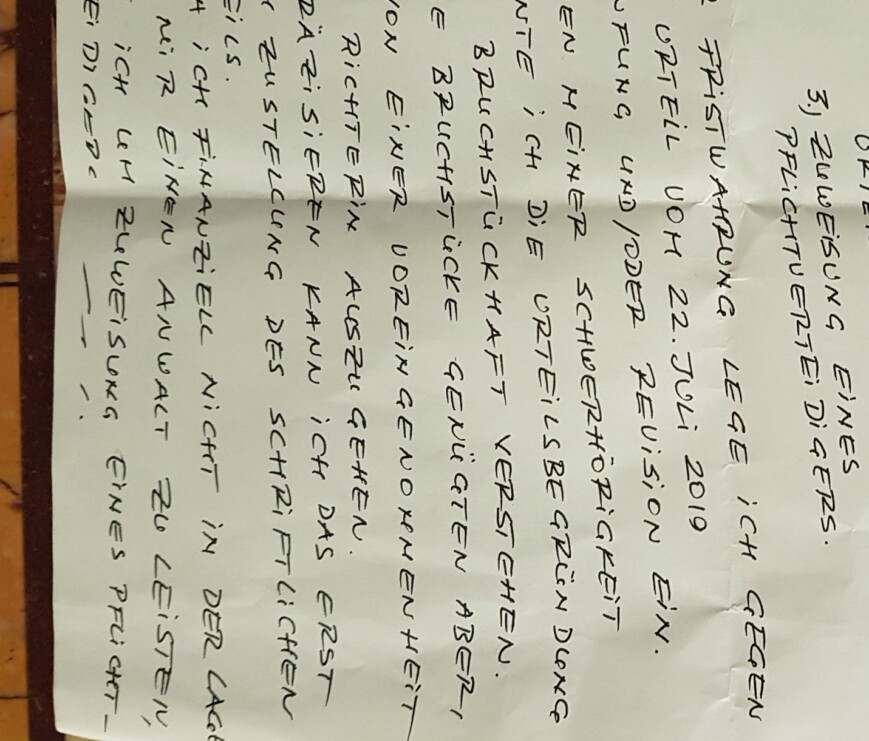 3.) ZUWEISUNG EINES
PFLICHTVERTEIDIGERS.
FRISTWAHRUNG LEGE ICH GEGEN
URTEIL VOM 22. JULI 2019
UFUNG UND/ODER REVISION EIN.
EN MEINER SCHWERHÖRIGKEIT
NTE ICH DIE URTEILSBEGRÜNDUNG
BRUCHSTÜCKHAFT VERSTEHEN.
E BRUCHSTÜCKE GENÜGTEN ABER,
ON EINER VOREINGENOMMENHEIT
RICHTERIN AUSZUGEHEN.
RÄZISIEREN KANN ICH DAS ERST
ZUSTELLUNG DES SCHRIFTLICHEN
EILS.
A ICH FINANZIELL NICHT IN DER LAGE
MIR EINEN ANWALT ZU LEISTEN,
ICH UM ZUWEISUNG EINES PFLICHT-